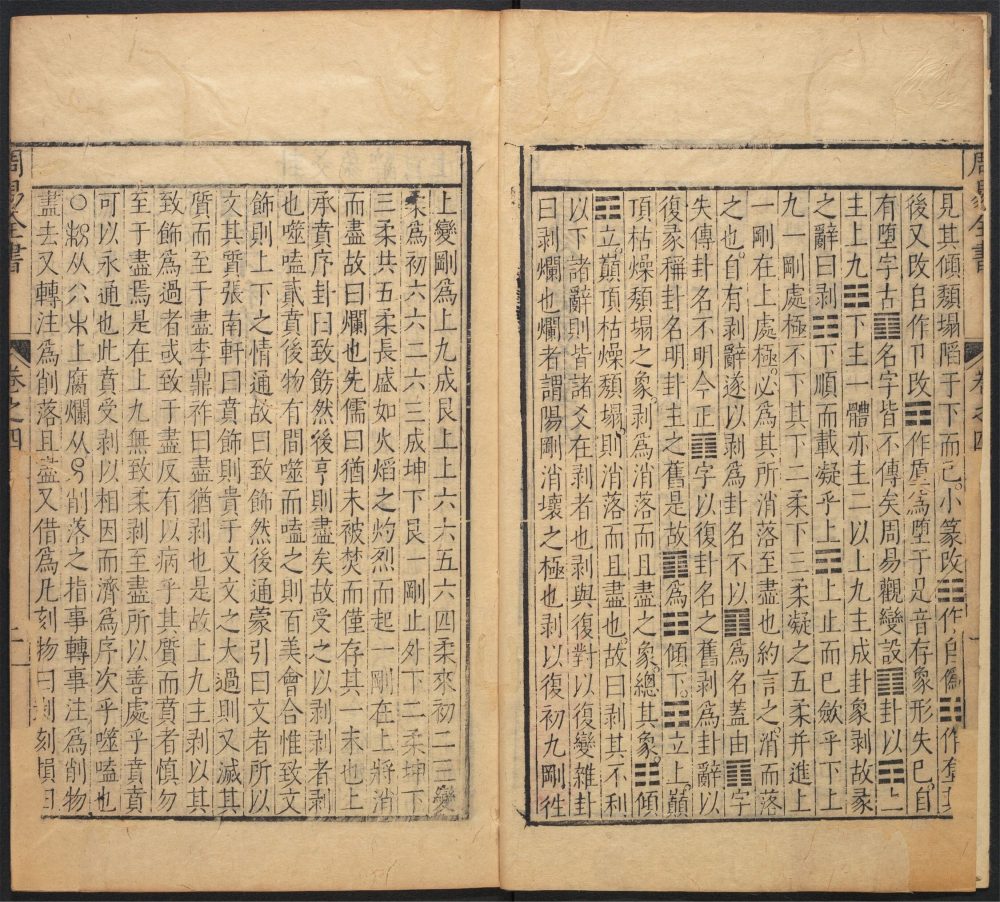 周易全書
卷之四
見其傾頽塌陷于下而己小篆改䷁作𨸏傷☶作隹
後又改𨸏作卩改☶作為堕于是音存象形失已自
有堕字古䷖名字皆不傳矣周易觀變設䷖卦以☶二
主上九☶下主一體亦主二以上九主成卦象剥故彖
之辭曰剥☷下順而載凝乎上☶上止而已斂乎下上
九一剛處極不下其下二柔下三柔凝之五柔并進上
一剛在上處極必為其所消落至盡也約言之消而落
之也自有剥辭逐以剥為卦名不以䷖為名蓋由䷖字
失傳卦名不明今正䷖字以復卦名之舊剥為卦辭以
復彖稱卦名明卦主之舊是故䷖為☷傾下☶立上巔
頂枯燥頽塌之象剥為消落而且盡之象總其象☷傾
☶立巔頂枯燥頽塌則消落而且盡也故曰剥其不利
以下諸辭則皆諸爻在剥者也剥與復對以復變雜卦
曰剥爛也爛者謂陽剛消壞之極也剥以復初九剛徃
上變剛為上九成艮上上六六五六四柔來初二三變
柔為初六六二六三成坤下艮一剛止外下二柔坤下
三柔共五柔長盛如火熖之灼烈而起一剛在上將消
而盡故曰爛也先儒曰猶未被焚而僅存其一末也上
承賁序卦曰致飾然後亨則盡矣故受之以剥剥者剥
也噬嗑貳賁後物有間噬而嗑之則百美會合惟致文
飾則上下之情通故曰致飾然後通蒙引曰文者所以
文其質張南軒曰賁飾則貴于文文之大過則又滅其
質而至于盡李鼎祚曰盡猶剥也是故上九主剥以其
致飾為過者或致于盡反有以病乎其質而賁者慎勿
至于盡焉是在上九無致柔剥至盡所以善處乎賁賁
可以永通也此賁受剥以相因而濟為序次乎噬嗑也
○剥从八木上腐爛从削落之指事轉事注為削物
盡去又轉注為削落且盡又借為凡刻物曰剥刻損曰
周易全書
卷之四
二